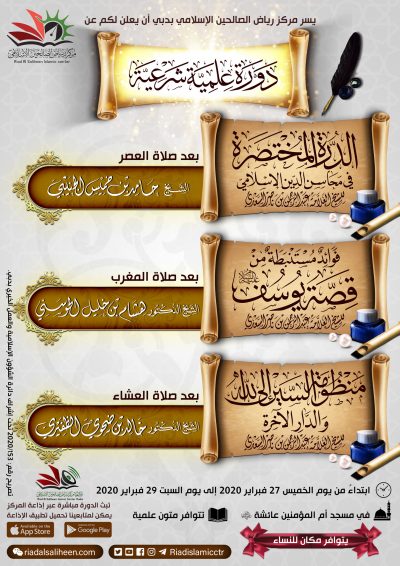 يسر مركز رياض الصالحين الإسلامي بدبي أن يعلن لكم عن
مركز رياض الصالحين الإسلامي
Riad Al Saliheen Islamic center
دورة علمية شرعية
الدرة المختصرة
في محاسن الدين الإسلامي
للشيخ العلامة عبد الرحمن بن ناصر السعدي
بعد صلاة العصر
الشيخ حامد بن خميس الجنيبي
فوائد مستنبطة من
قصة يوسف
للشيخ العلامة عبد الرحمن بن ناصر السعدي
بعد صلاة المغرب
الشيخ الدكتور هشام بن خليل الحوسني
منظومة السير إلى الله
والدار الآخرة
للشيخ العلامة عبد الرحمن بن ناصر السعدي
بعد صلاة العشاء
الشيخ الدكتور خالد بن ضحوي الظفيري
ابتداءً من يوم الخميس 27 فبراير 2020 إلى يوم السبت 29 فبراير 2020
في مسجد أم المؤمنين عائشة
تتوافر متون علمية
يتوافر مكان للنساء
تبث الدورة مباشرة عبر إذاعة المركز
يمكن لمتابعينا تحميل تطبيق الإذاعة
Available on the
App Store
Google Play
riadalsaliheen.com
Riadislamicctr